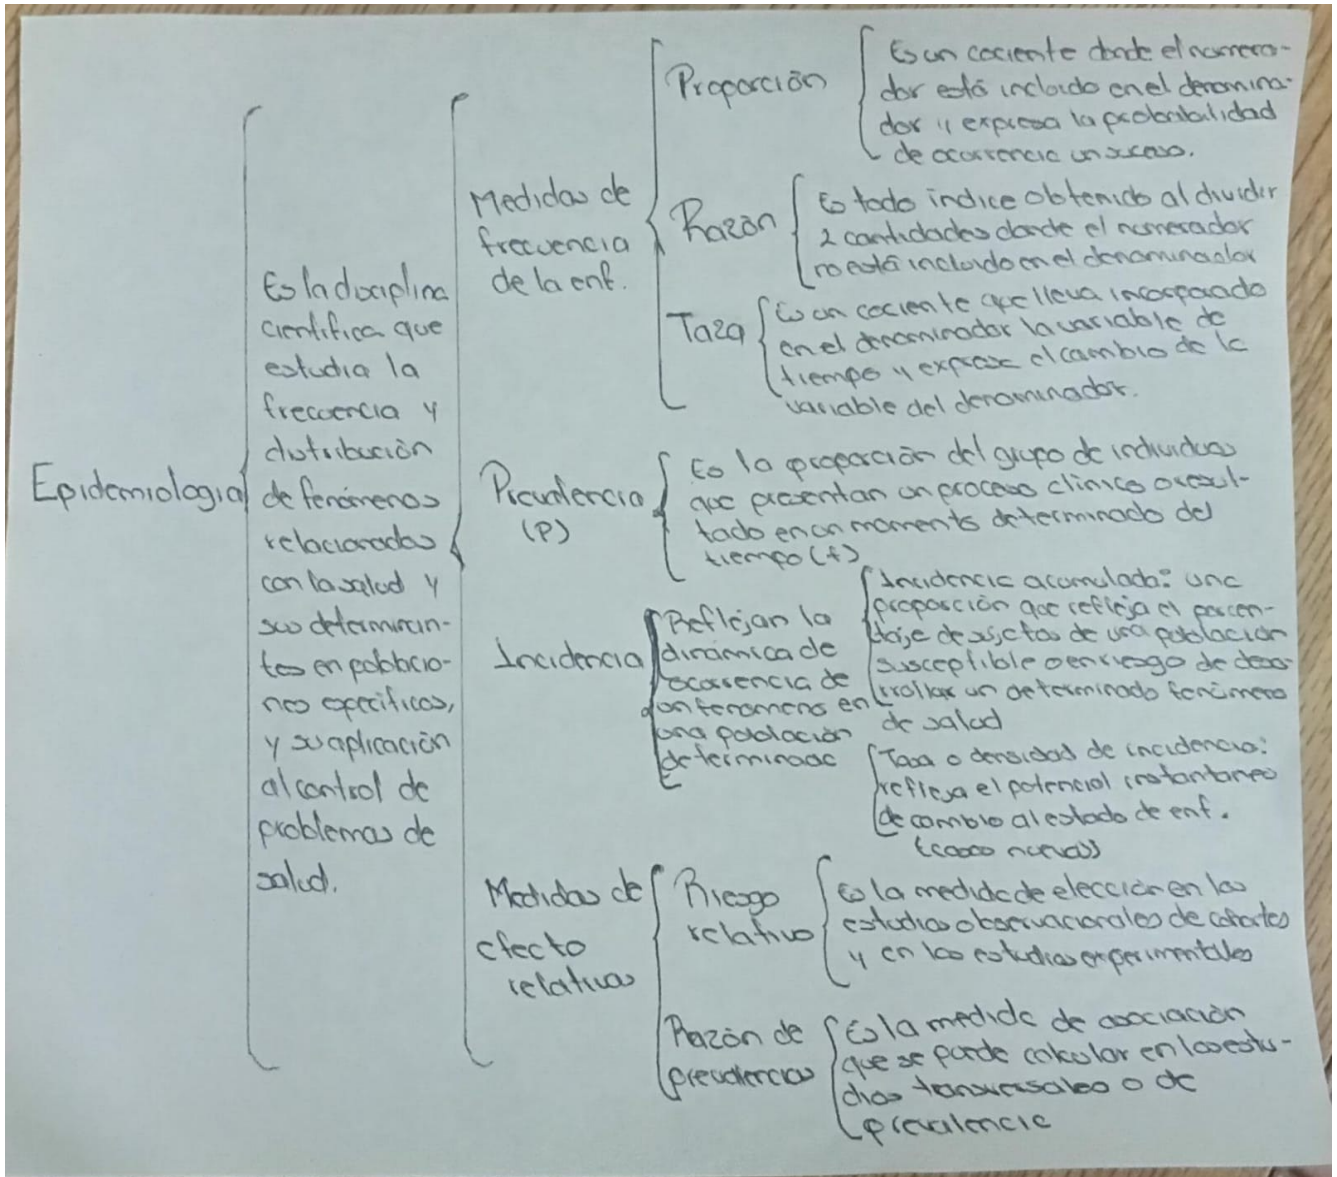 Epidemiologia
Es la disciplina
científica que
estudia la
frecuencia y
distribución
de fenómenos
relacionados
con la salud y
sus determinan-
tes en poblacio-
nes especificas,
y su aplicación
al control de
problemas de
salud.
Medidas de
frecuencia
de la enf.
Proporción
Es un cociente donde el numera-
dor está incluido en el denomina-
dor y expresa la probabilidad
de ocurrencia un suceso.
Razón
Es todo índice obtenido al dividir
2 cantidades donde el numerador
no está incluido en el denominador
Taza
Es un cociente que lleva incorporado
en el denominador la variable de
tiempo y expresa el cambio de la
variable del denominador.
Prevalencia
(P)
Es la proporción del grupo de individuos
que presentan un proceso clínico o resul-
tado en un momento determinado del
tiempo (t)
Incidencia
Reflejan la
dinámica de
ocurrencia de
un fenómeno en
una población
determinada
Incidencia acumulada: una
proporción que refleja el porcen-
taje de sujetos de una población
susceptible o en riesgo de desa-
rrollar un determinado fenómeno
de salud
Tasa o densidad de incidencia:
refleja el potencial instantaneo
de cambio al estado de enf.
(casos nuevos)
Medidas de
efecto
relativas
Riesgo
relativo
Es la medida de elección en los
estudios observacionales de cohortes
y en los estudios experimentales
Razón de
prevalencias
Es la medida de asociación
que se puede calcular en los estu-
dios transversales o de
prevalencia